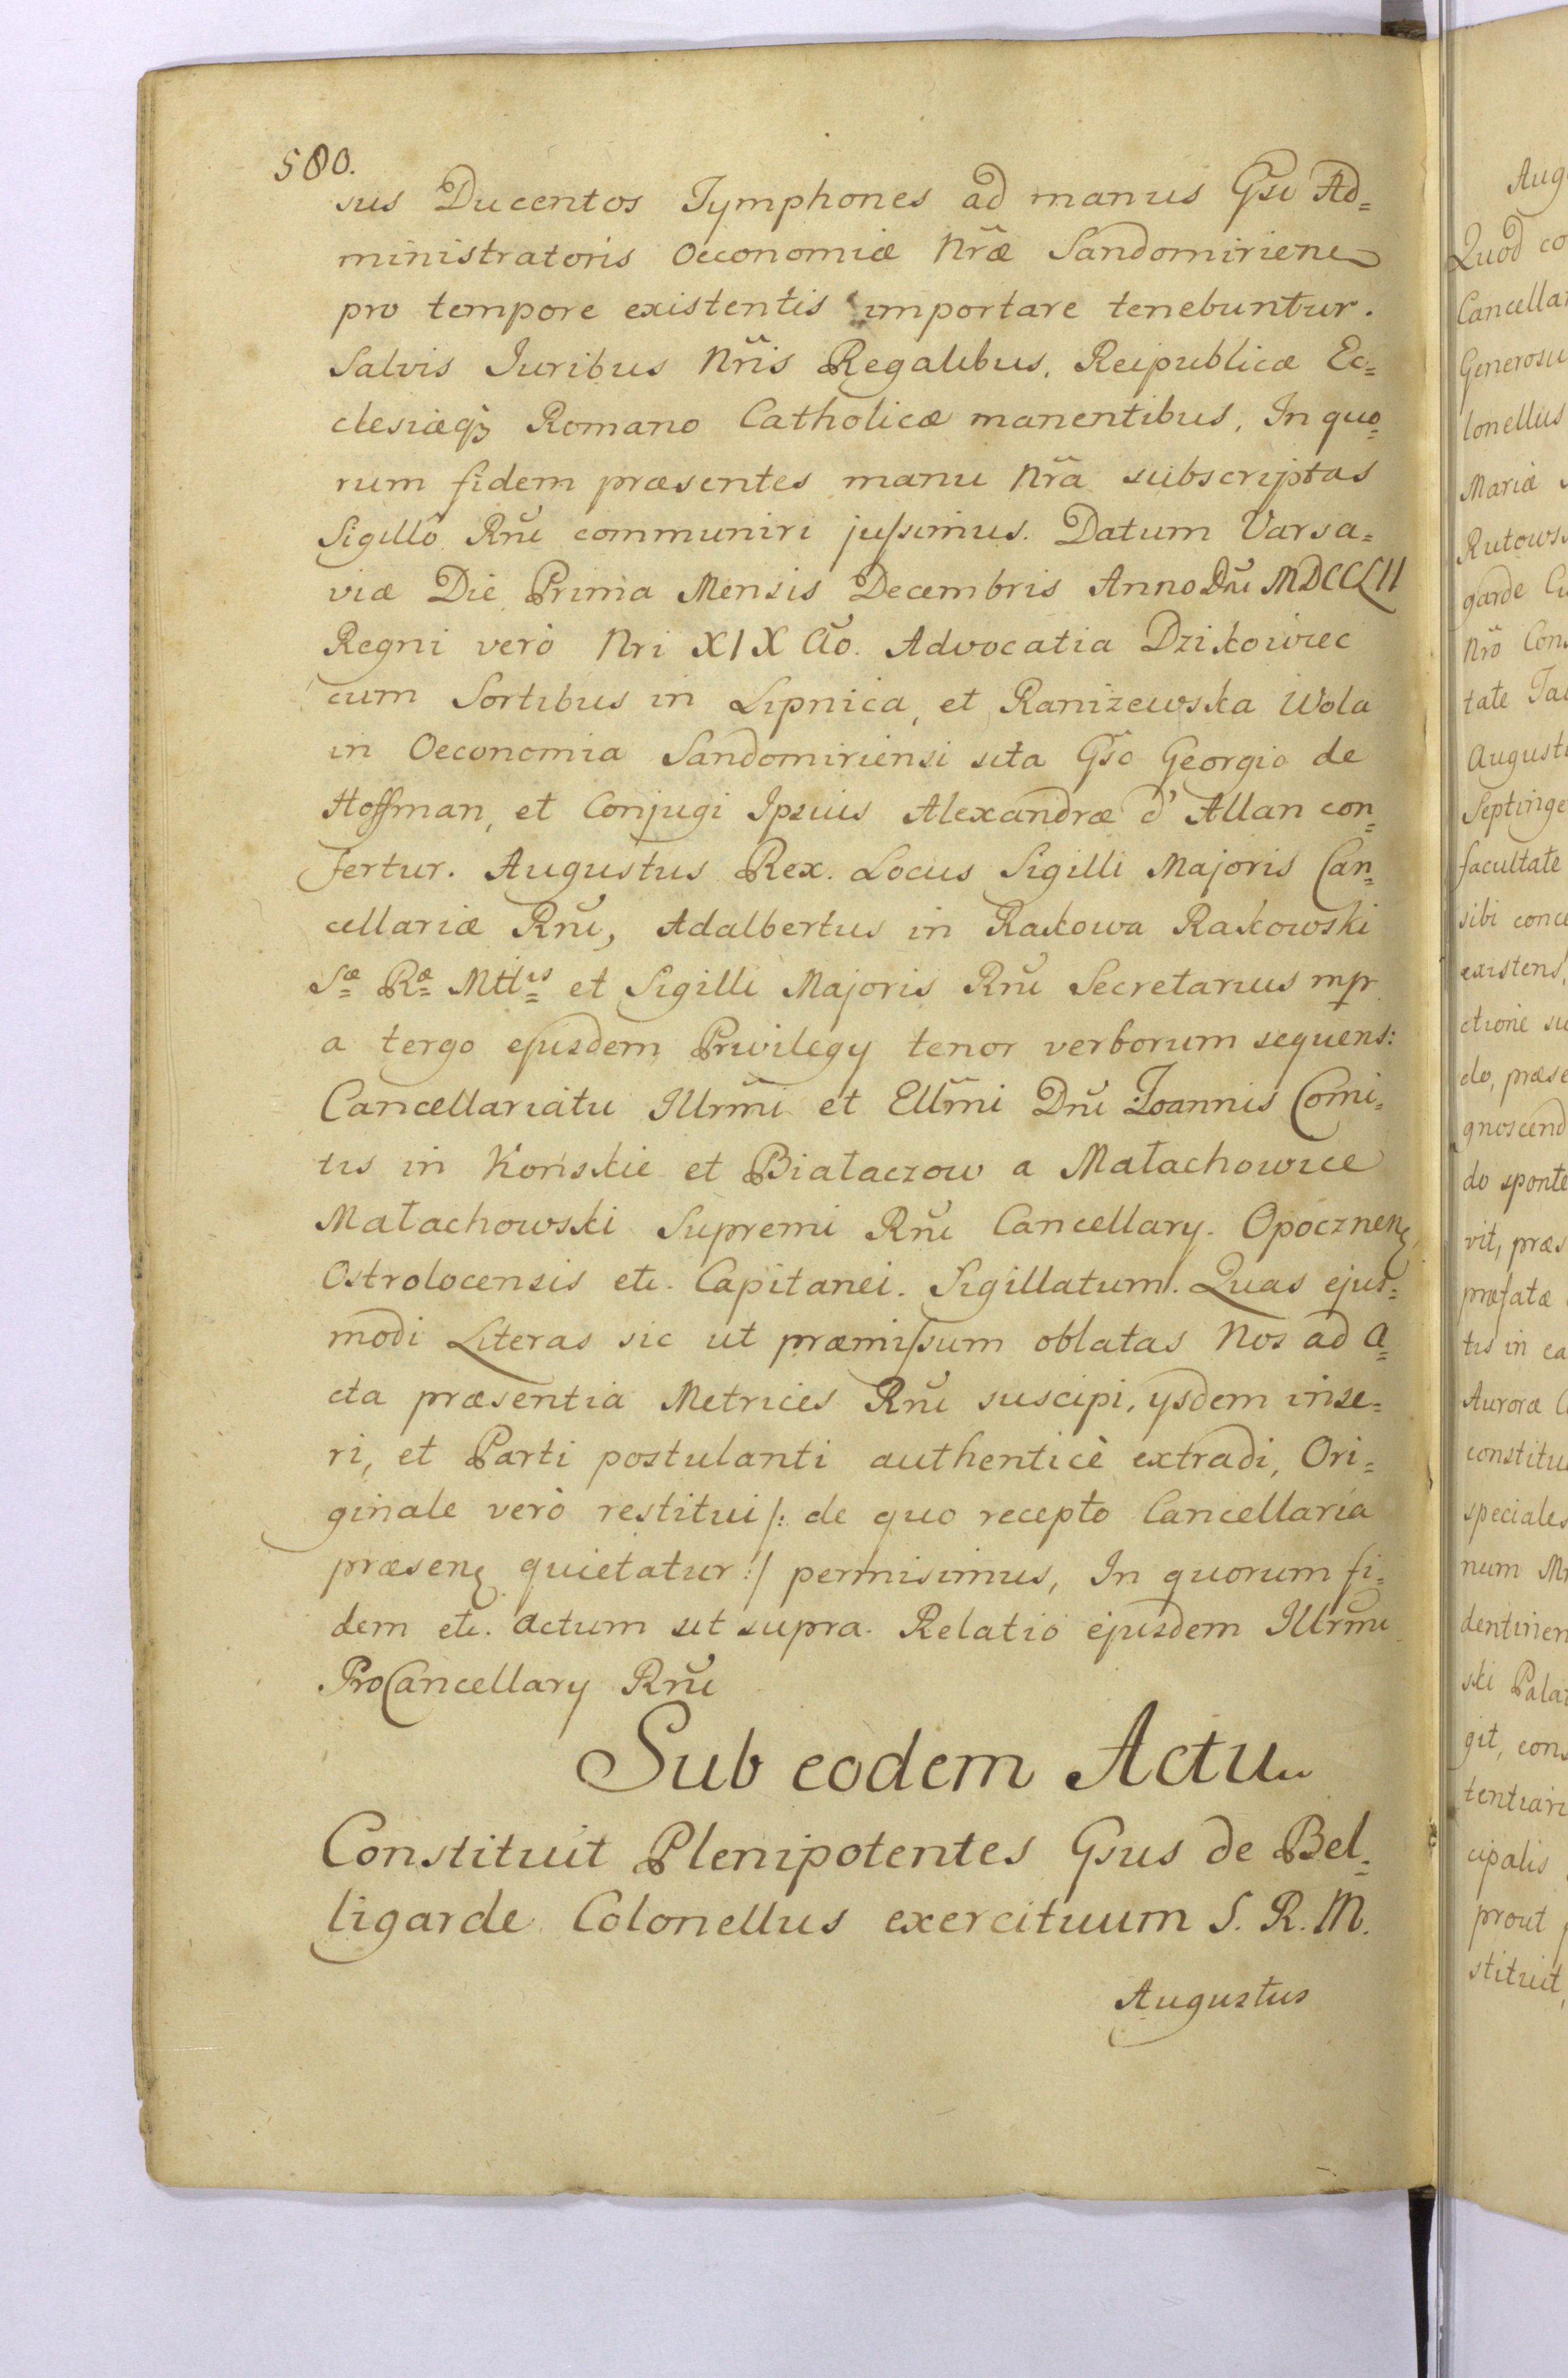 580.
sus Ducentos Tymphones ad manus Gsi Ad=
ministratoris Oeconomiæ Nr̃æ Sandomiriens
pro tempore existentis importare tenebuntur.
Salvis Iuribus Nr̃is Regalibus, Reipublicæ Ec=
clesiæq₃ Romano Catholicæ manentibus, In quo=
rum fidem præsentes manu Nr̃a subscriptas
Sigillô Rñi communiri jussimus. Datum Varsa=
viæ Die Prima Mensis Decembris Anno Dñi MDCCLII
Regni verò Nri XIX Aõ. Advocatia Dzikowiec
cum Sortibus in Lipnica, et Ranizewska Wola
in Oeconomia Sandomiriensi sita Gso Georgio de
Hoffman, et Conjugi Ipsius Alexandræ d'Allan con=
fertur. Augustus Rex. Locus Sigilli Majoris Can=
cellariæ Rñi, Adalbertus in Rakowa Rakowski
Sæ Ræ Mttis et Sigilli Majoris Rñi Secretarius mpr
a tergo ejusdem Privilegy tenor verborum sequens:
Cancellariatu Illrm̃i et Ellm̃i Dñi Joannis Comi=
tis in Końskie et Białaczow a Małachowice
Małachowski Supremi Rñi Cancellary. Opocznen
Ostrolocensis etc. Capitanei. Sigillatum. Quas ejus=
modi Literas sic ut præmissum oblatas Nos ad A=
cta præsentia Metrices Rñi suscipi, ysdem inse=
ri, et Parti postulanti authenticè extradi, Ori=
ginale verò restitui /: de quo recepto Cancellaria
præsens quietatur :/ permisimus, In quorum fi=
dem etc. Actum ut supra. Relatio ejusdem Illrm̃i
ProCancellary Rñi
Sub eodem Actu
Constituit Plenipotentes Gsus de Bel=
ligarde Colonellus exercituum S. R. M.
Augustus
Aug
Quod co
Cancellar
Generosu
lonellus
Mariæ
Rutows
garde
Nrõ Con
tate
Augusti
Septinge
facultate
sibi conce
existens,
ctione su
do, præse
gnoscend
do sponte
vit, præs
præfatæ
tis in ea
Auroræ
constitu
speciales
num
dentinen
ski Palat
git, cons
tentiari
cipalis
prout
stituit,